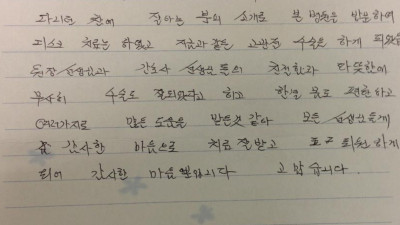 하던 차에 잘하는 분의 소개로 본 병원을 방문하여
디스크 치료는 하였고 지금과 같은 고관절 수술을 하게 되었음
원장 선생님과 간호사 선생님들의 친절함과 따뜻함에
무사히 수술도 잘되었다고 하고 한결 몸도 편한하고
여러가지로 많은 도움을 받은것 같아 모든 선생님들게
감사한 마음으로 치료 잘 받고 퇴원 하게
되어 감사한 마음뿐입니다 고맙습니다.